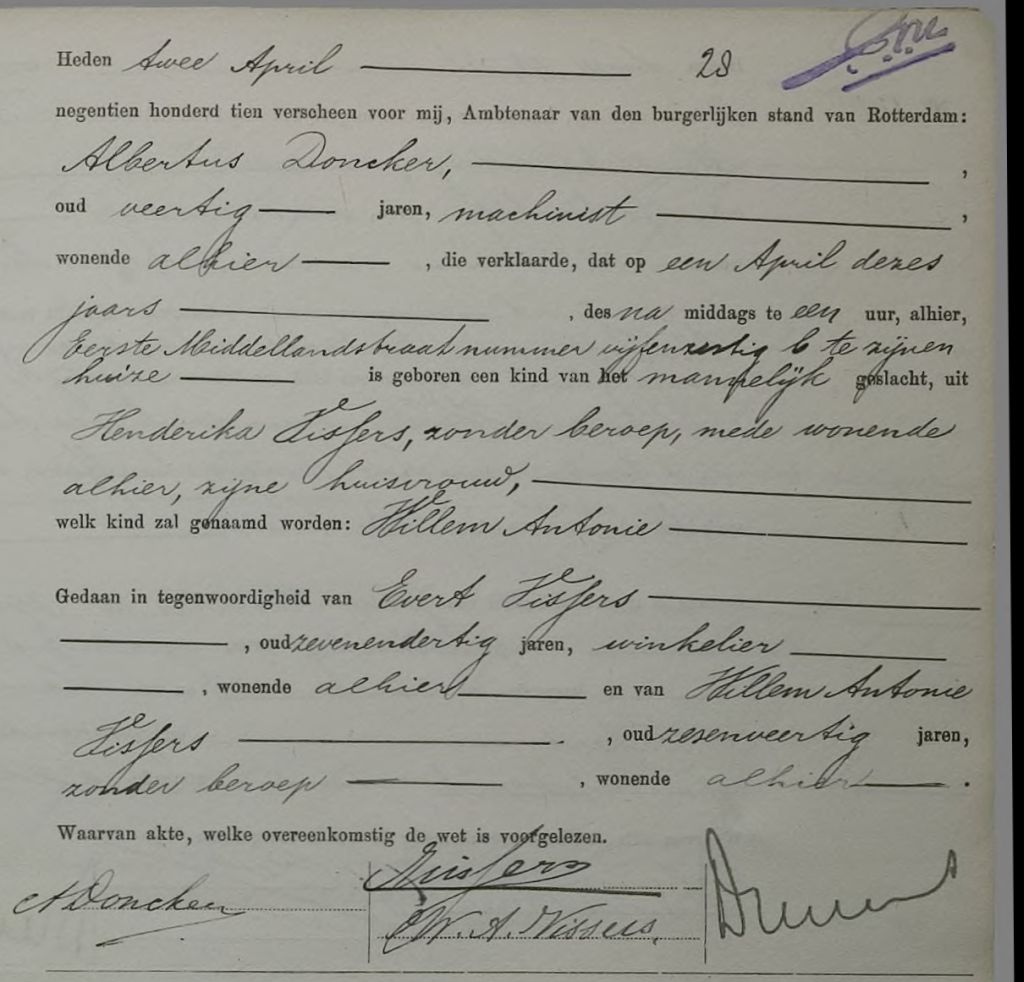 Heden twee April 28
negentien honderd tien verscheen voor mij, Ambtenaar van den burgerlijken stand van Rotterdam:
Albertus Doncker, ,
oud veertig jaren, machinist ,
wonende alhier , die verklaarde, dat op een April dezes
jaars , des na middags te een uur, alhier,
Eerste Middellandstraat nummer vijfenzestig b te zijnen
huize is geboren een kind van het mannelijk geslacht, uit
Henderika Vissers, zonder beroep, mede wonende
alhier, zijne huisvrouw,
welk kind zal genaamd worden: Willem Antonie
Gedaan in tegenwoordigheid van Evert Vissers
, oud zevenendertig jaren, winkelier
, wonende alhier en van Willem Antonie
Vissers , oud zesenveertig jaren,
zonder beroep , wonende alhier .
Waarvan akte, welke overeenkomstig de wet is voorgelezen.
Vissers
A Doncker
W. A. Vissers